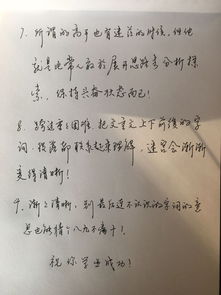 7. 所谓的高手也有迷茫的时候,但他
就是非常人敢于展开思路去分析探
索,保持兴奋状态而已!
8. 跨过重重困难,把文章上下前后的字
词、段落都联系起来理解,迷雾会渐渐
变得清晰!
9. 渐渐清晰,到最后连不认识的字词的意
思也能猜个八九不离十!
祝你学业成功!